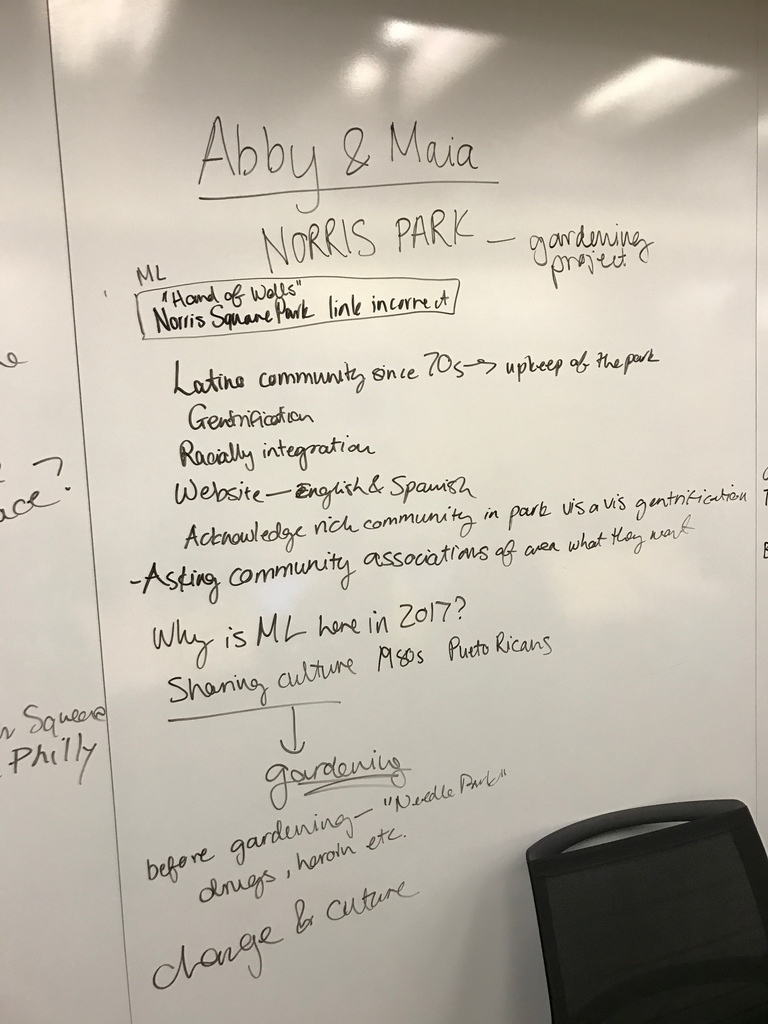 Abby & Maia
NORRIS PARK — gardening
project
ML
"Hand of Wells"
Norris Square Park link incorrect
Latino community since 70s → upkeep of the park
Gentrification
Racially integration
Website — English & Spanish
Acknowledge rich community in park vis a vis gentrification
- Asking community associations of area what they want
Why is ML here in 2017?
Sharing culture 1980s Pueto Ricans
↓
gardening
before gardening — "Needle Park"
drugs, heroin etc.
change & cuture
ace?
Squeare
Philly